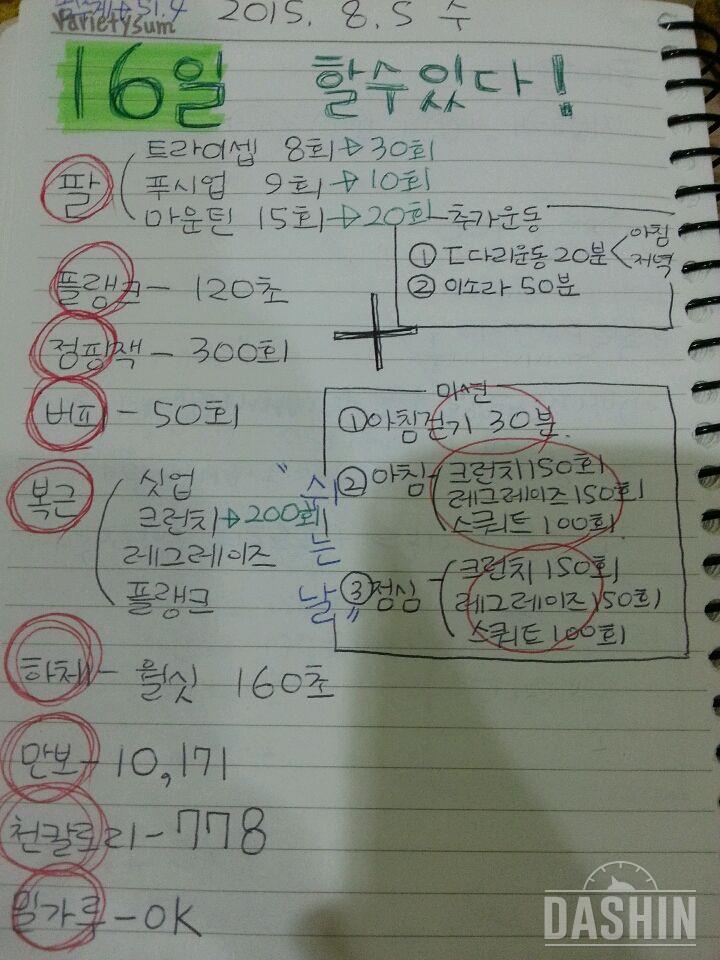 51.4
varietysum
2015. 8. 5 수
16일 할수있다!
팔
트라이셉 8회→30회
푸시업 9회→10회
마운틴 15회→20회
추가운동
① ㄷ다리운동 20분 < 아침 저녁
② 이소라 50분
플랭크 - 120초
+
정핑잭 - 300회
버피 - 50회
미션
①아침걷기 30분.
②아침
크런치 150회
레그레이즈 150회
스쿼트 100회
③점심
크런치 150회
레그레이즈 150회
스쿼트 100회
복근
싯업
크런치→200회
레그레이즈
플랭크
"쉬는 날"
하체 - 월싯 160초
만보 - 10,171
천칼로리 - 778
밀가루 - OK
DASHIN